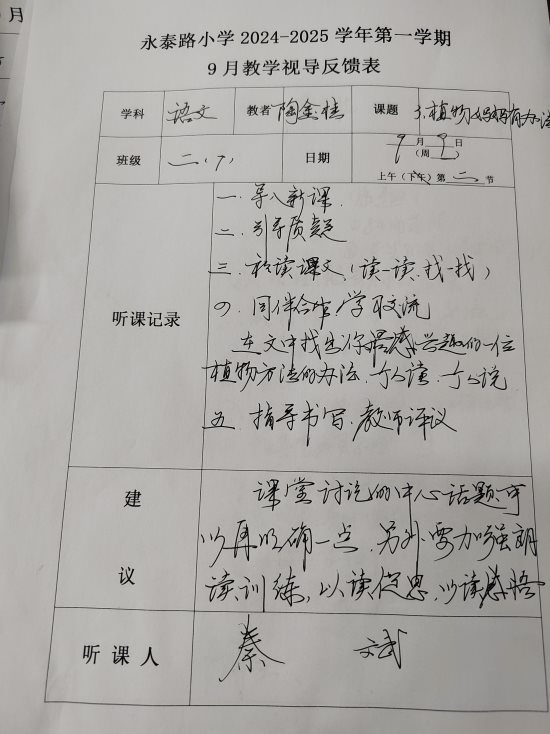 月
永泰路小学 2024-2025 学年第一学期
9 月教学视导反馈表
学科 语文 教者 陶金桂 课题 3.植物妈妈有办法
班级 二.(7) 日期 9 月 9 日
(周 一)
上午(下午)第 二 节
一. 导入新课.
二. 引导质疑
三. 初读课文,(读一读.找一找)
四. 同伴合作学习交流
听课记录
在文中找出你最感兴趣的一位
植物方法的办法,
五. 指导书写.教师评议
建
议
课堂讨论的中心话题.可
以再明确一点.另外要加强朗
读训练,以读促思,以读感悟
听课人 秦 斌